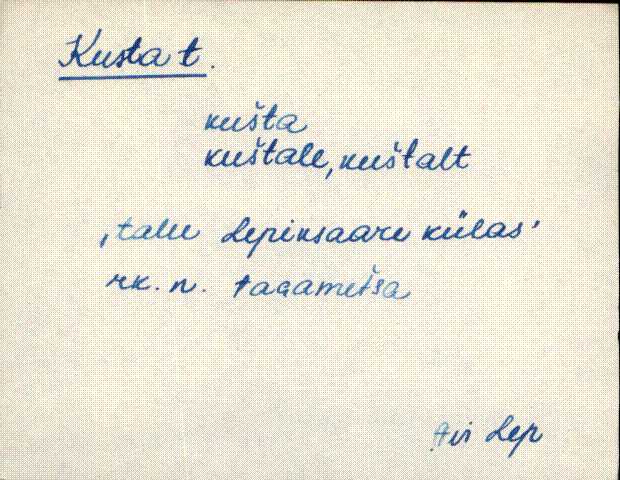 Kusta t.
kušta
kuštale, kuštalt
‚talu Lepiksaare külas’
rk. n. tagametsa
Avi Lep